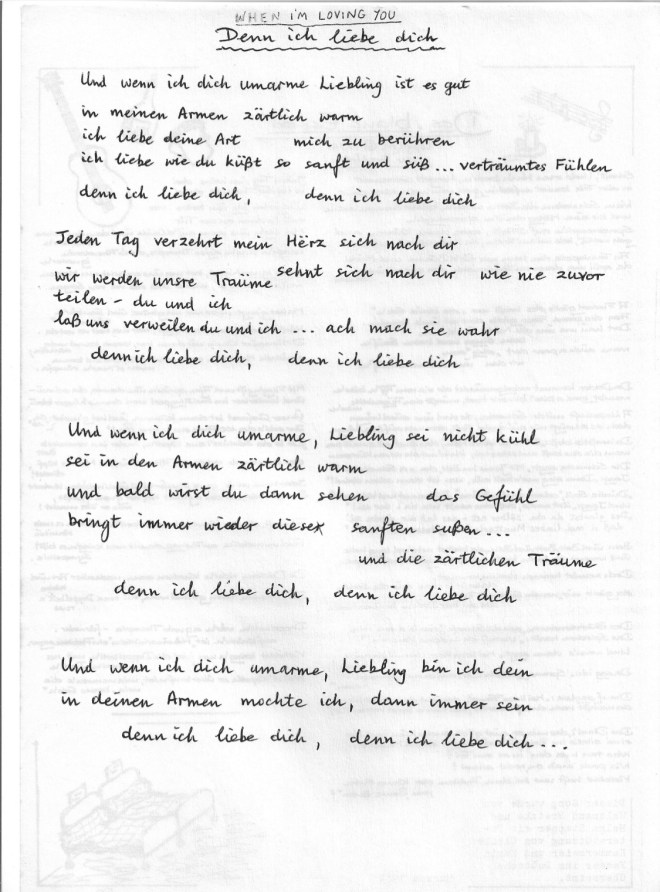 WHEN I'M LOVING YOU
Denn ich liebe dich
Und wenn ich dich umarme Liebling ist es gut
in meinen Armen zärtlich warm
ich liebe deine Art mich zu berühren
ich liebe wie du küßt so sanft und süß ... verträumtes Fühlen
denn ich liebe dich, denn ich liebe dich
Jeden Tag verzehrt mein Hërz sich nach dir
wir werden unsre Traüme sehnt sich nach dir wie nie zuvor
teilen - du und ich
laß uns verweilen du und ich ... ach mach sie wahr
denn ich liebe dich, denn ich liebe dich
Und wenn ich dich umarme, Liebling sei nicht kühl
sei in den Armen zärtlich warm
und bald wirst du dann sehen das Gefühl
bringt immer wieder diese sanften sußen ...
und die zärtlichen Träume
denn ich liebe dich, denn ich liebe dich
Und wenn ich dich umarme, Liebling bin ich dein
in deinen Armen mochte ich, dann immer sein
denn ich liebe dich, denn ich liebe dich ...